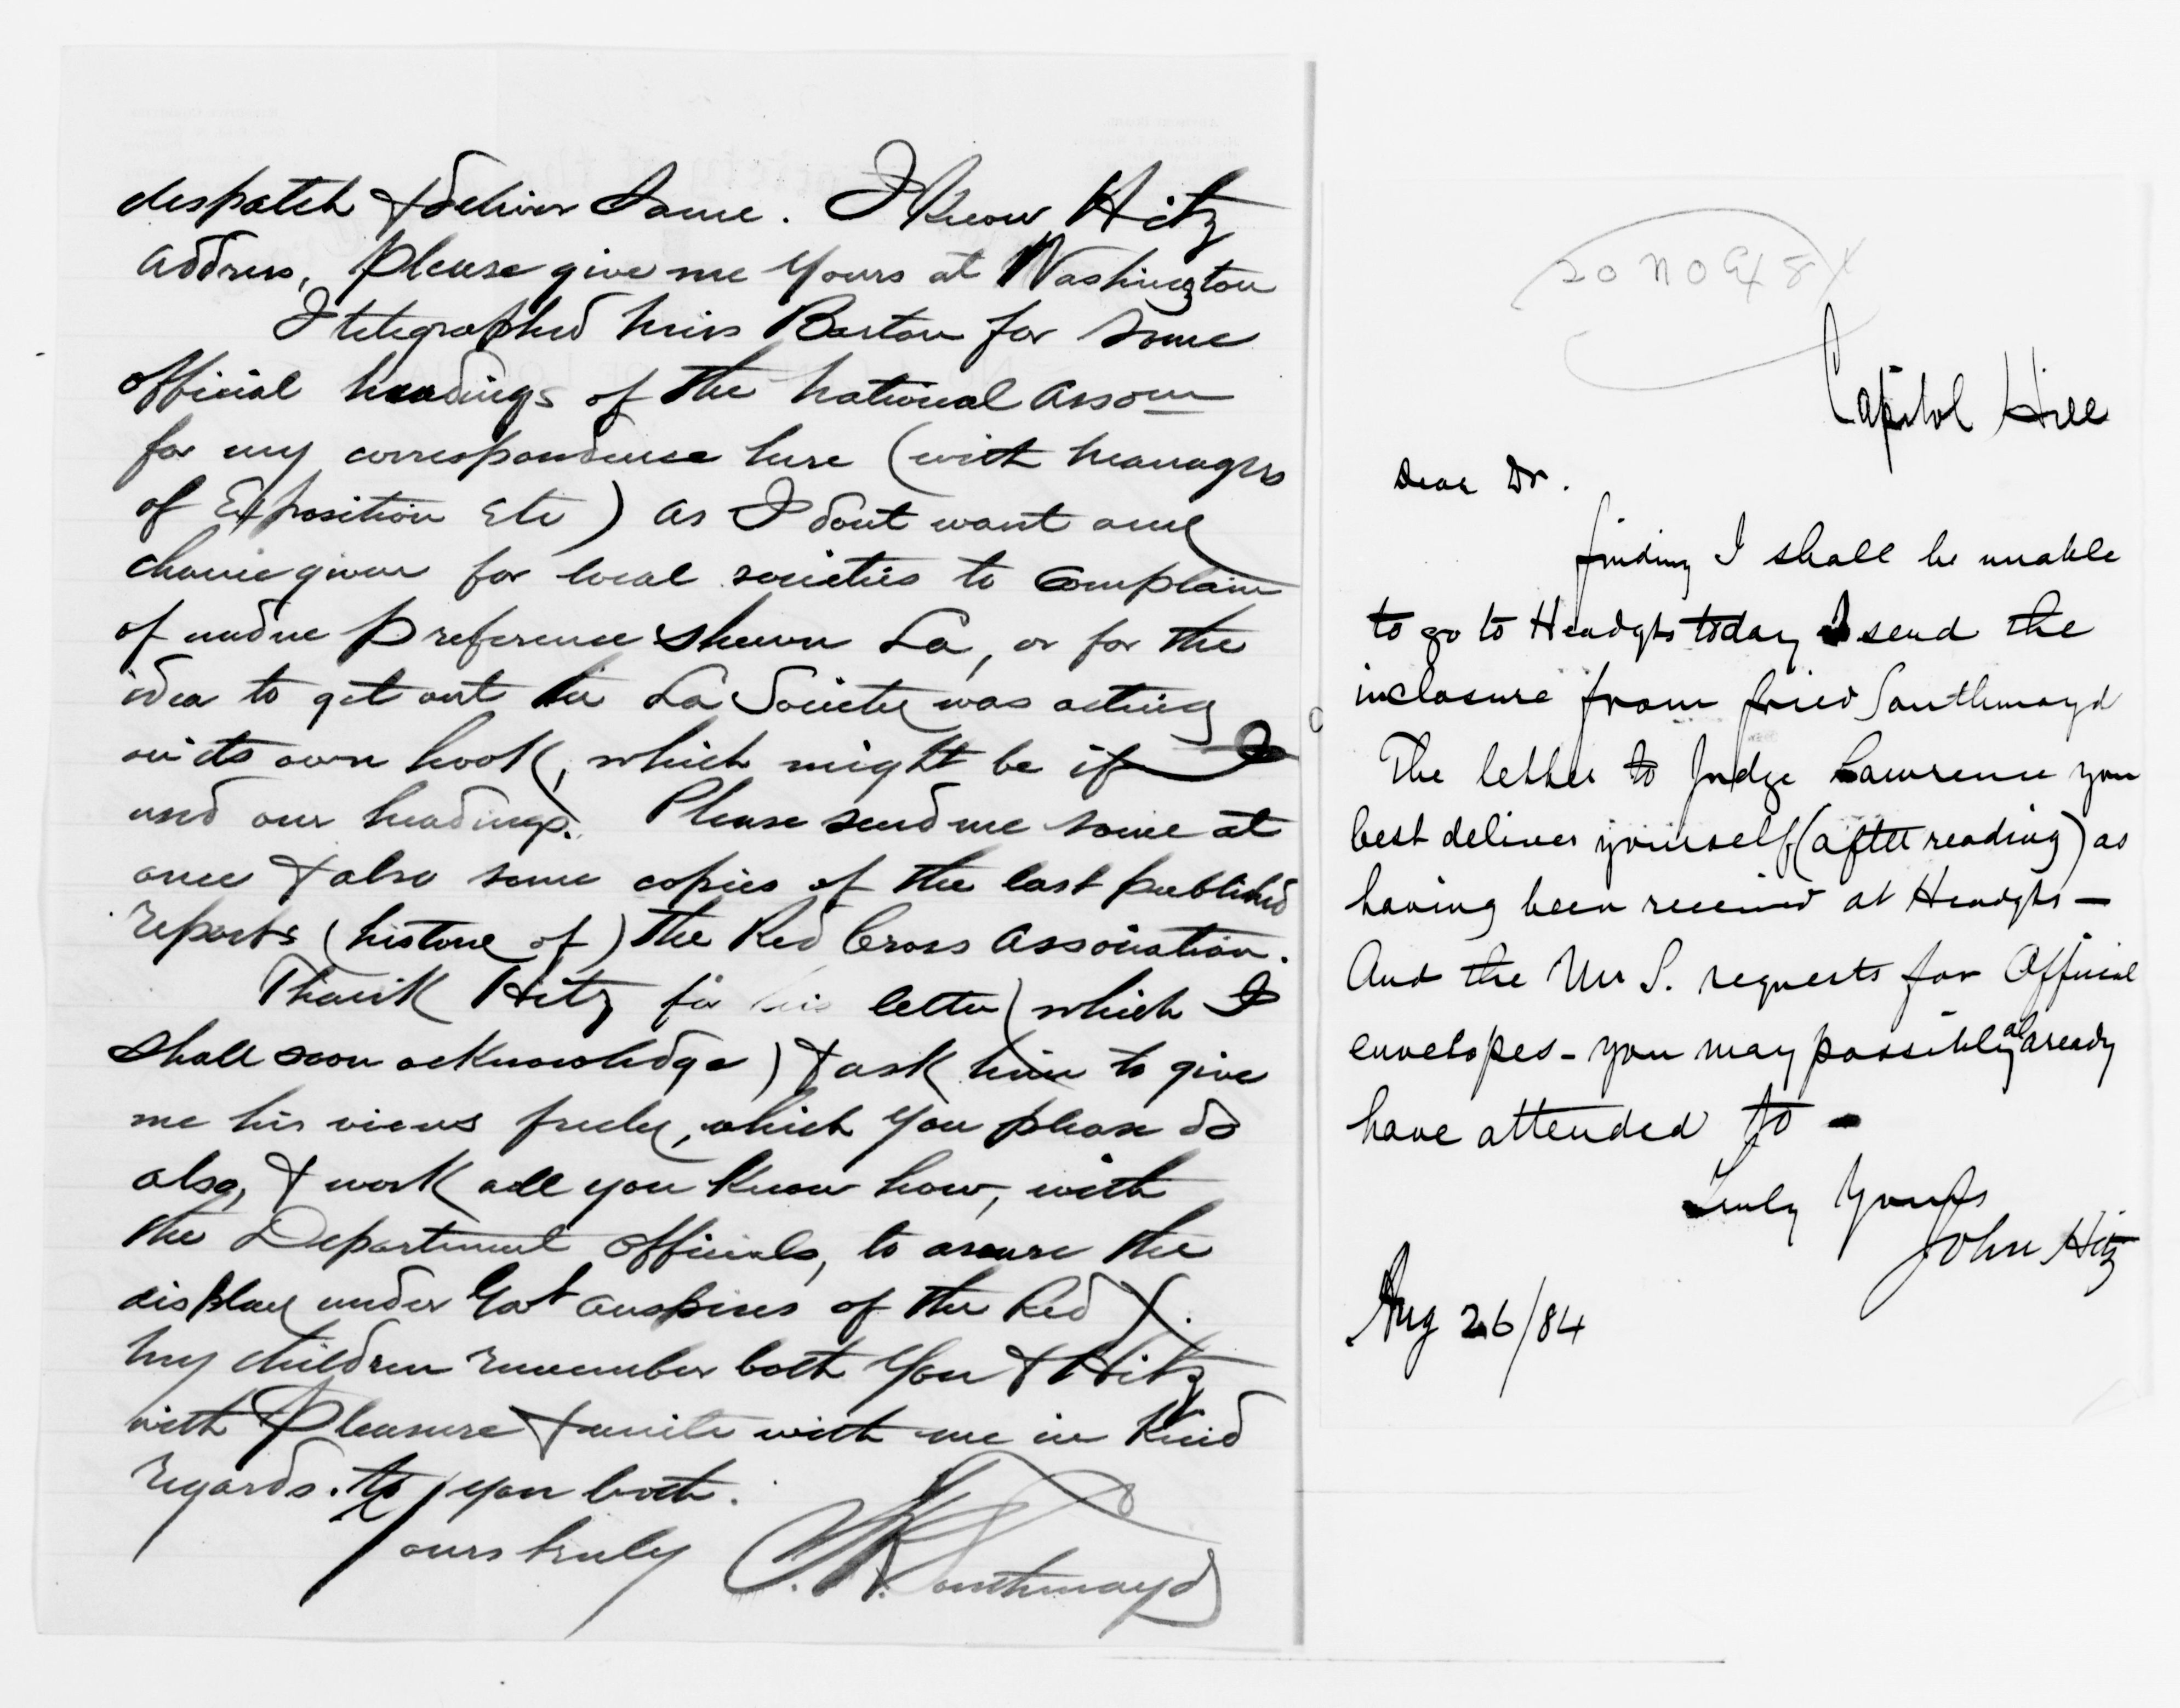 despatch & deliver same. I know Hitz
address, please give me yours at Washington
I telegraphed Miss Barton for some
official headings of the National Assocn
for my correspondence here (with managers
of Exposition etc) as I dont want any
chance given for local societies to complain
of undue preference shewn La, or for the
idea to get out the La Society was acting
on its own hook, which might be if I
used our headings. Please send me some at
once & also some copies of the last published
reports (history of) the Red Cross Association.
Thank Hitz for his letter (which I
shall soon acknowledge) & ask him to give
me his views freely, which you please do
also, & work all you know how, with
the Department officials, to assure the
display under Govt auspices of the Red X.
My children remember both you & Hitz
with pleasure & unite with me in kind
regards. to you both.
Yours truly F. R. Southmayd
Capitol Hill
Dear Dr.
finding I shall be unable
to go to Headqrs today I send the
inclosure from fried Southmayd
The letter to Judge Lawrence you
best deliver yourself (after reading) as
having been received at Headqrs —
And the Mr S. requests for Official
envelopes - you may possibly already
have attended to —
Truly Yours
John Hitz
Aug 26/84